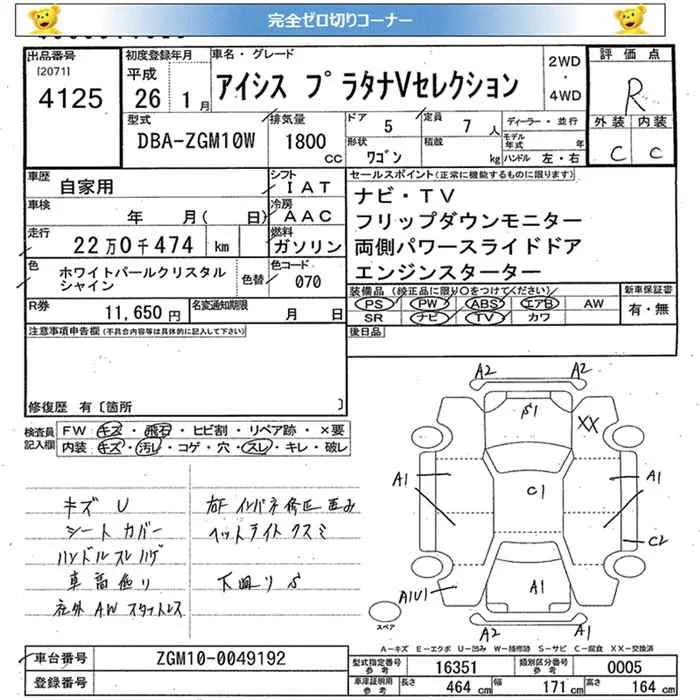 完全ゼロ切りコーナー
出品番号
[2071]
4125
初度登録年月
平成
26年 1月
車名・グレード
アイシス プラタナVセレクション
2WD
・
4WD
評価点
R
型式
DBA-ZGM10W
排気量
1800
cc
ドア 5
定員 7 人
形状 ワゴン
積載 kg
ディーラー・並行
モデル年式 年
ハンドル 左・右
外装 内装
C C
車歴 自家用
シフト IAT
車検 年 月( 日)
冷房 AAC
走行 22万0千474 km
燃料 ガソリン
色 ホワイトパールクリスタル
シャイン
色替
色コード 070
R券 11,650円
名変通知期限 月 日
セールスポイント(正常に機能するものに限ります)
ナビ・TV
フリップダウンモニター
両側パワースライドドア
エンジンスターター
装備品(純正品に限り○をつけてください)
PS PW ABS エアB AW
SR ナビ TV カワ
新車保証書
有・無
後日品
注意事項申告欄(不具合内容等は具体的に記入して下さい)
修復歴 有〔箇所 〕
検査員
記入欄
FW キズ・飛石・ヒビ割・リペア跡・×要
内装 キズ・汚レ・コゲ・穴・スレ・キレ・破レ
キズ U
シートカバー
ハンドルスレハゲ
車高低り
社外AWスタットレス
右F インパネ修正 歪み
ヘッドライトクスミ
下廻りS
A2 A2
S1
XX
A1
C1
A1
C2
A1U1
A1
A2 A1
スペア
A-キズ E-エクボ U-凹み W-補修跡 S-サビ C-腐食 XX-交換済
車台番号 ZGM10-0049192
登録番号
型式指定番号
参考
16351
類別区分番号
参考
0005
車庫証明用
参考
長さ 464 cm 幅 171 cm 高さ 164 cm